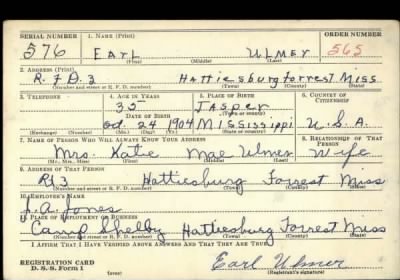 SERIAL NUMBER 1. NAME (Print) ORDER NUMBER
576 EARL ULMER 565
(First) (Middle) (Last)
2. ADDRESS (Print)
R.F.D. 3 Hattiesburg Forrest Miss
(Number and street or R. F. D. number) (Town) (County) (State)
3. TELEPHONE 4. AGE IN YEARS 5. PLACE OF BIRTH 6. COUNTRY OF CITIZENSHIP
35 JASPER
DATE OF BIRTH (Town or county)
Oct 24 1904 MISSISSIPPI U.S.A
(Exchange) (Number) (Mo.) (Day) (Yr.) (State or country)
7. NAME OF PERSON WHO WILL ALWAYS KNOW YOUR ADDRESS 8. RELATIONSHIP OF THAT PERSON
Mrs. Katie Mae Ulmer Wife
(Mr., Mrs., Miss) (First) (Middle) (Last)
9. ADDRESS OF THAT PERSON
Rt 3 Hattiesburg Forrest Miss
(Number and street or R. F. D. number) (Town) (County) (State)
10. EMPLOYER'S NAME
J.A. Jones
11. PLACE OF EMPLOYMENT OR BUSINESS
Camp Shelby Hattiesburg Forrest Miss
(Number and street or R. F. D. number) (Town) (County) (State)
I AFFIRM THAT I HAVE VERIFIED ABOVE ANSWERS AND THAT THEY ARE TRUE.
REGISTRATION CARD
D. S. S. Form 1 Earl Ulmer
(over) (Registrant's signature)